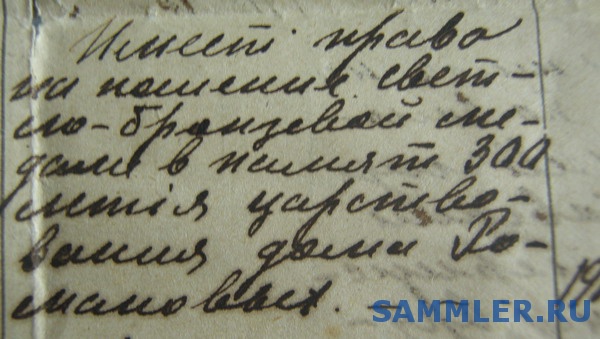 Имеет право
на ношение свет-
ло-бронзевой ме-
дали в память 300
летія царство-
вания дома Ро-
мановых.
19
SAMMLER.RU